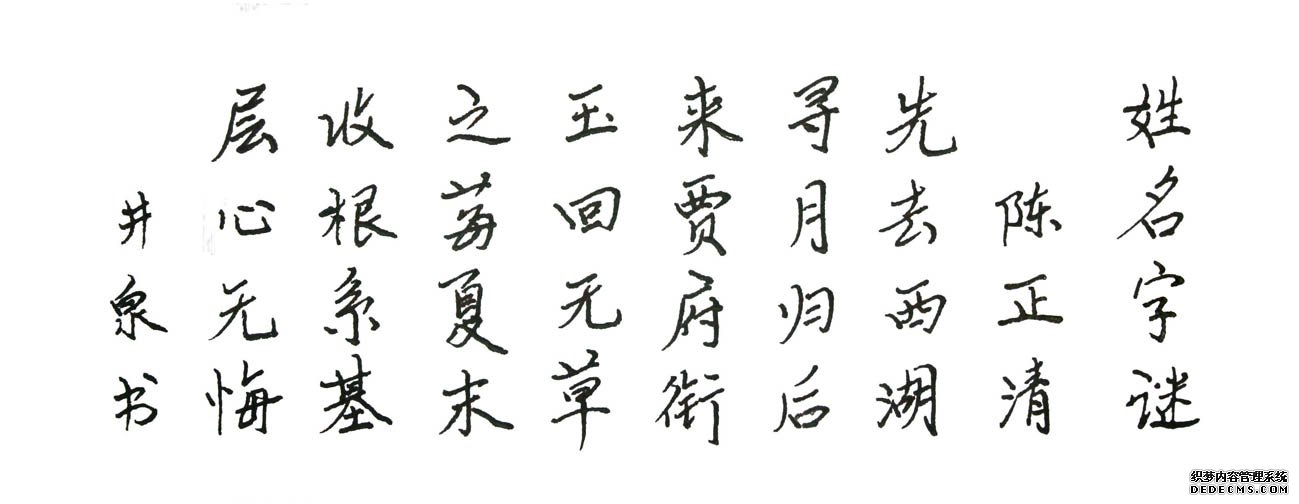 姓名字谜
陈正清
先去西湖
寻月归后
来贾府衔
玉回无草
之莓夏末
收根系基
层心无悔
井泉书
织梦内容管理系统
DEDECMS.COM